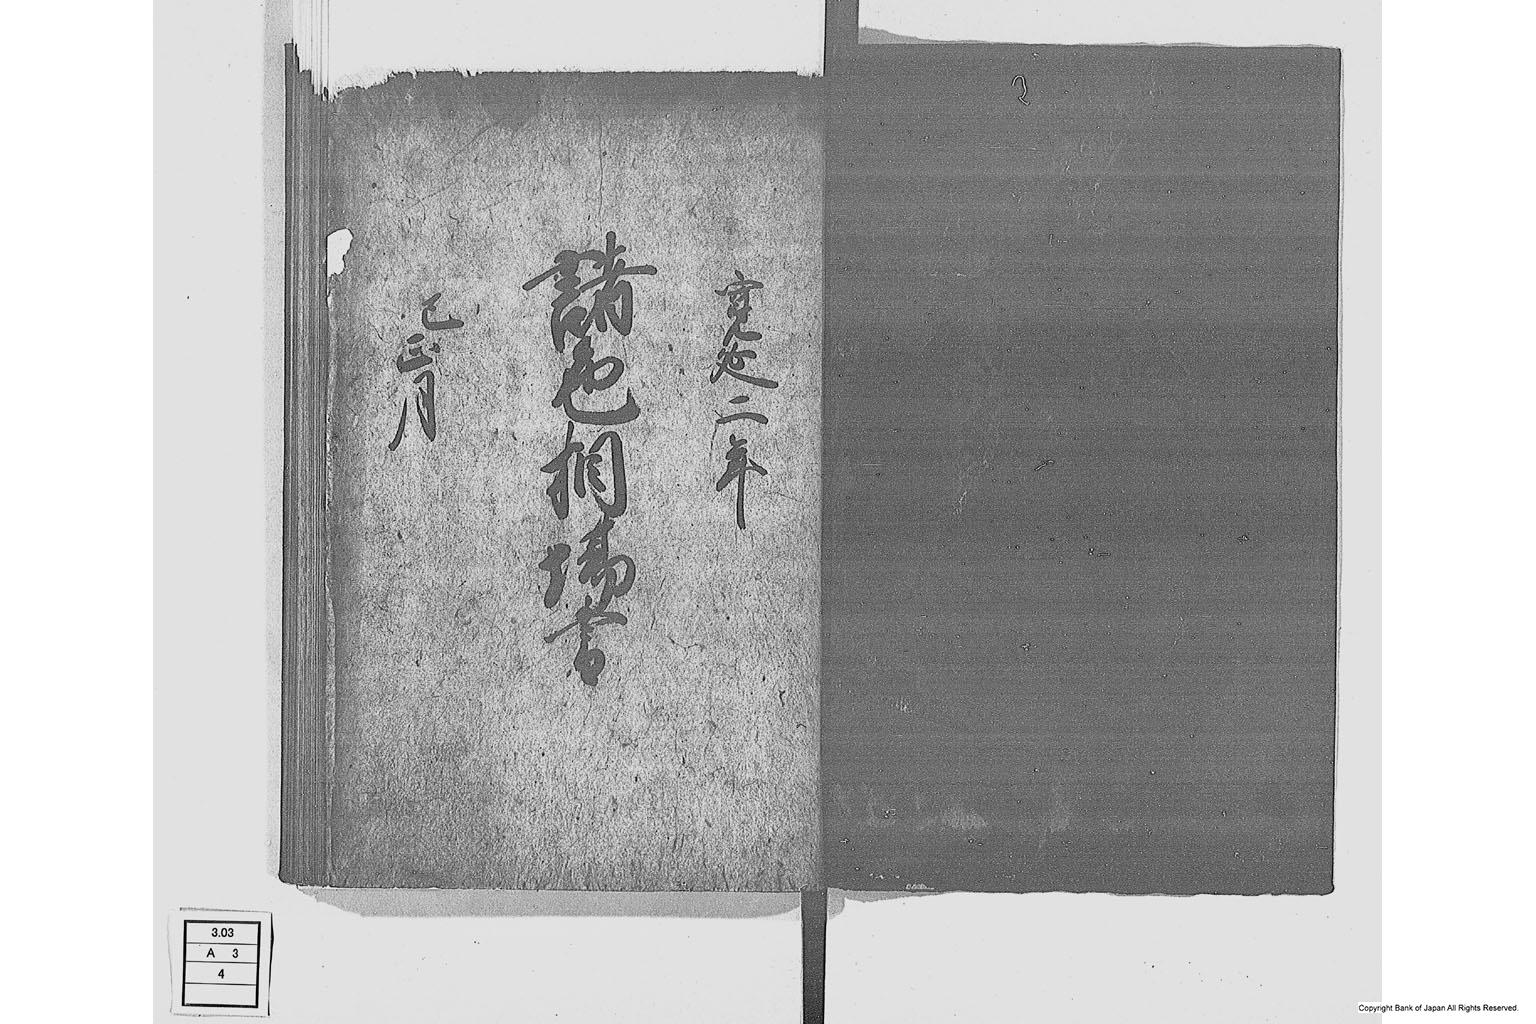 2
寛延二年
諸色相場書
巳正月
3.03
A 3
4
Copyright Bank of Japan All Rights Reserved.